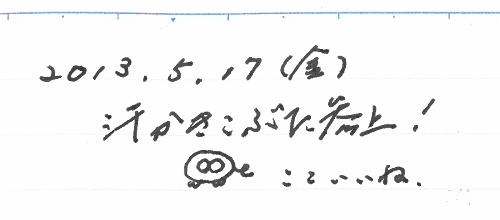 2013.5.17(金)
汗かきこぶた参上!
ここいいね.